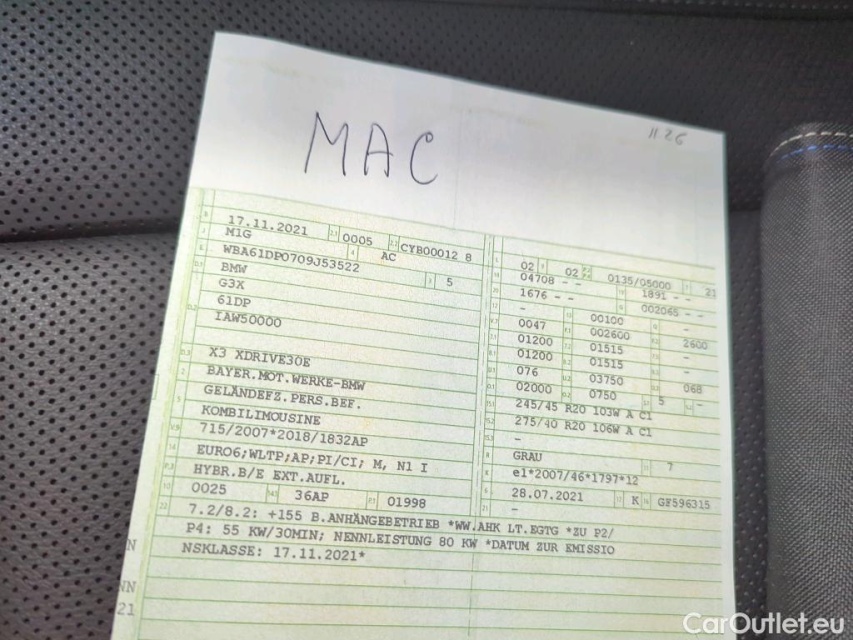 MAC
1126
17.11.2021 0005 CYB00012 8
M1G AC
WBA61DP0709J53522
BMW 5
G3X
61DP
IAW50000
X3 XDRIVE30E
BAYER.MOT.WERKE-BMW
GELÄNDEFZ.PERS.BEF.
KOMBILIMOUSINE
715/2007*2018/1832AP
EURO6;WLTP;AP;PI/CI; M, N1 I
HYBR.B/E EXT.AUFL.
0025 36AP 01998
02 02 0135/05000 21
04708 - - 1891 - -
1676 - - 002065 - -
- 00100 -
0047 002600 2600
01200 01515 -
01200 01515 -
076 03750 068
02000 0750 5 -
245/45 R20 103W A C1
275/40 R20 106W A C1
-
GRAU 7
e1*2007/46*1797*12
28.07.2021 K GF596315
-
7.2/8.2: +155 B.ANHÄNGEBETRIEB *WW.AHK LT.EGTG *ZU P2/
P4: 55 KW/30MIN; NENNLEISTUNG 80 KW *DATUM ZUR EMISSIO
NSKLASSE: 17.11.2021*
N
NN
21
CarOutlet.eu